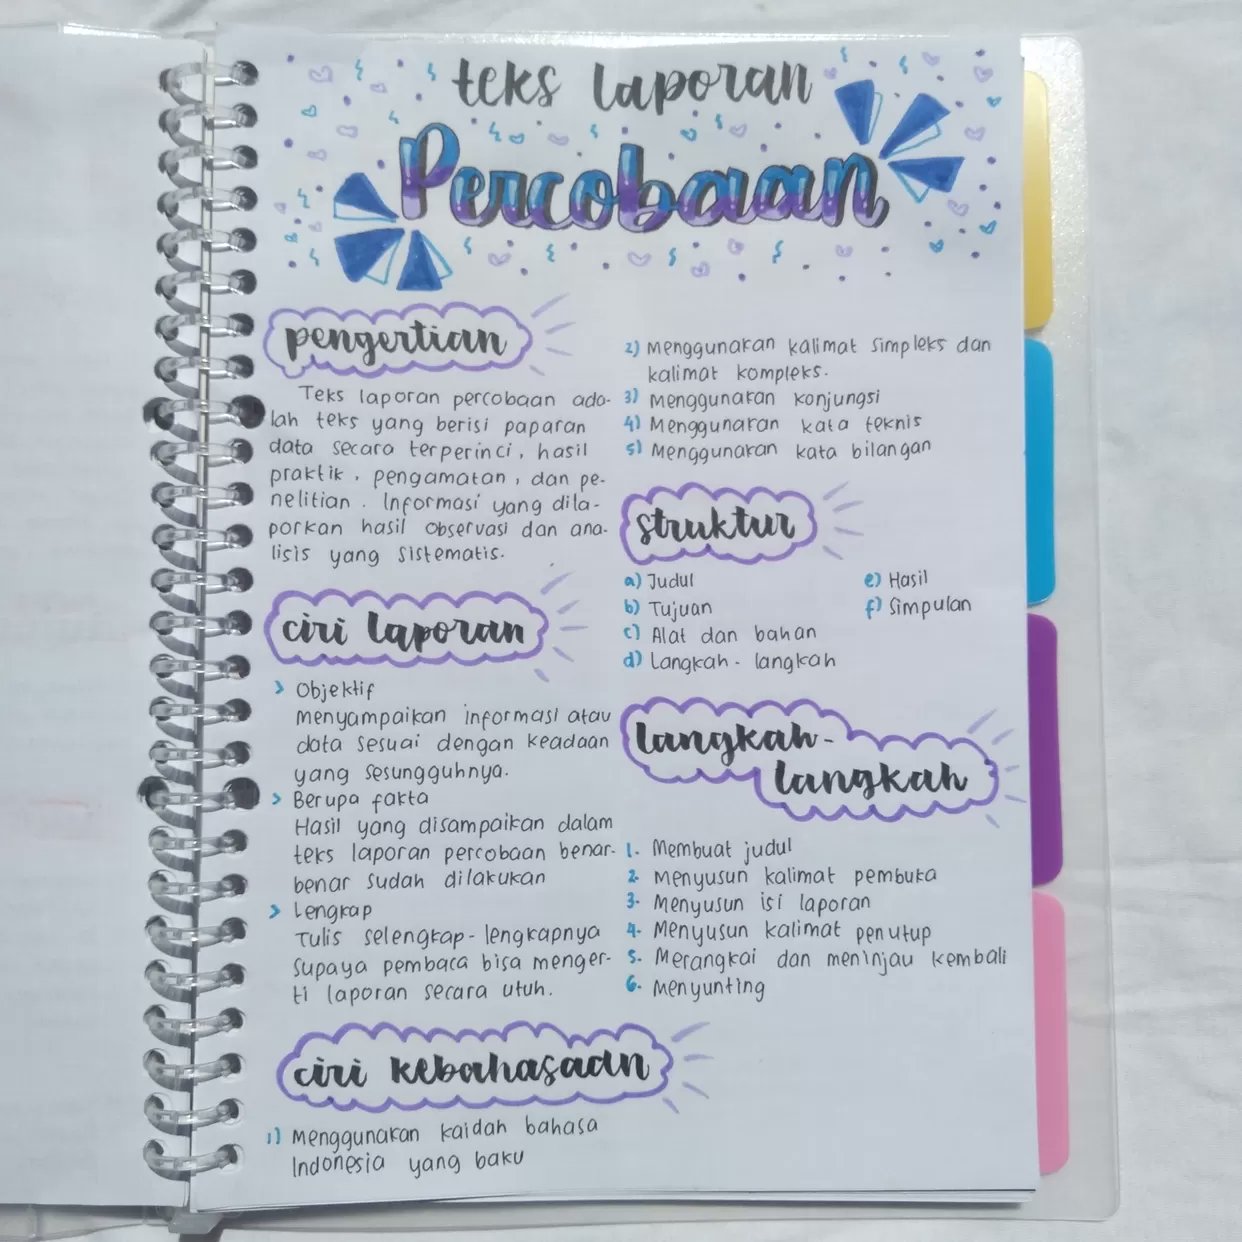 teks laporan
Percobaan
pengertian
Teks laporan percobaan ada-
lah teks yang berisi paparan
data secara terperinci, hasil
praktik, pengamatan, dan pe-
nelitian. Informasi yang dila-
porkan hasil observasi dan ana-
lisis yang sistematis.
ciri laporan
> Objektif
menyampaikan informasi atau
data sesuai dengan keadaan
yang sesungguhnya.
> Berupa fakta
Hasil yang disampaikan dalam
teks laporan percobaan benar-
benar sudah dilakukan
> Lengkap
Tulis selengkap-lengkapnya
supaya pembaca bisa menger-
ti laporan secara utuh.
ciri kebahasaan
1) Menggunakan kaidah bahasa
Indonesia yang baku
2) Menggunakan kalimat simpleks dan
kalimat kompleks.
3) Menggunakan konjungsi
4) Menggunakan kata teknis
5) Menggunakan kata bilangan
struktur
a) Judul
b) Tujuan
c) Alat dan bahan
d) Langkah-langkah
e) Hasil
f) Simpulan
langkah-
langkah
1. Membuat judul
2. Menyusun kalimat pembuka
3. Menyusun isi laporan
4. Menyusun kalimat penutup
5. Merangkai dan meninjau kembali
6. Menyunting